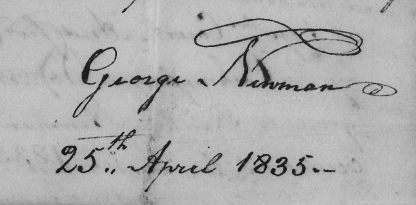 George Newman
25.th April 1835.-